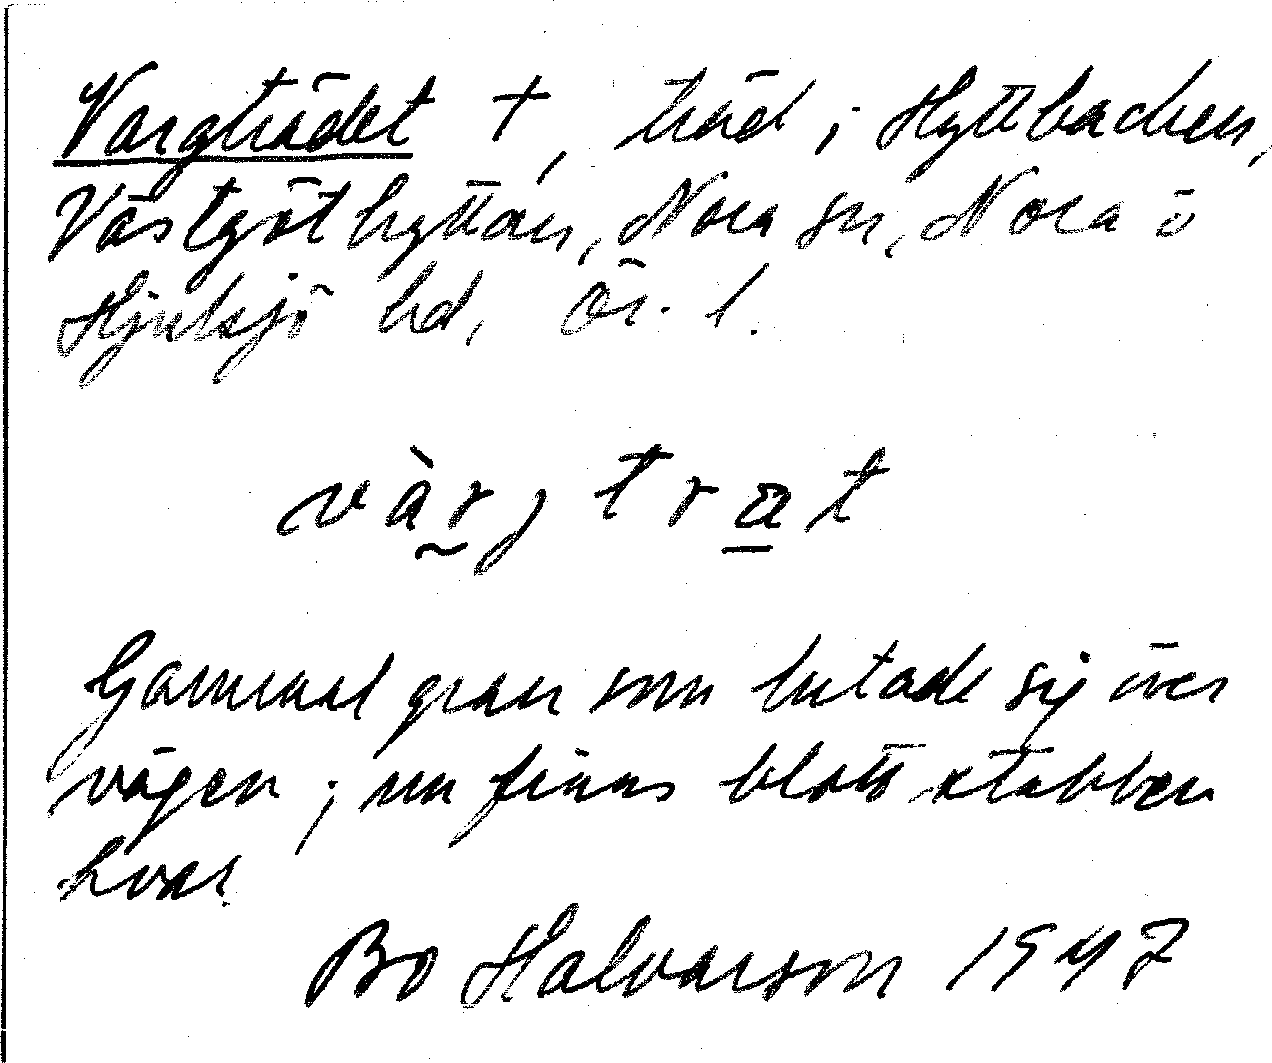 Vargträdet †, träd i Hyttbacken,
Västgöthyttan, Nora sn, Nora o
Hjulsjö hd, Ör. l.
vàrgtrat
Gammal gran som lutade sig över
vägen; nu finns blott stubben
kvar.
Bo Halvarson 1947